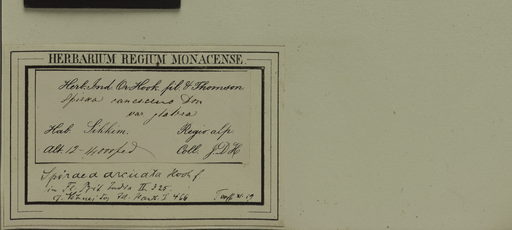 HERBARIUM REGIUM MONACENSE.
Herb. Ind. Or. Hook. fil. & Thomson
Spiraea canescens Don
var glabra
Hab. Sikkim. Regio alp
Alt. 12-14,000 ped Coll. J.D.H.
Spiraea arcuata Hook f.
in Fl. Brit. India II. 325